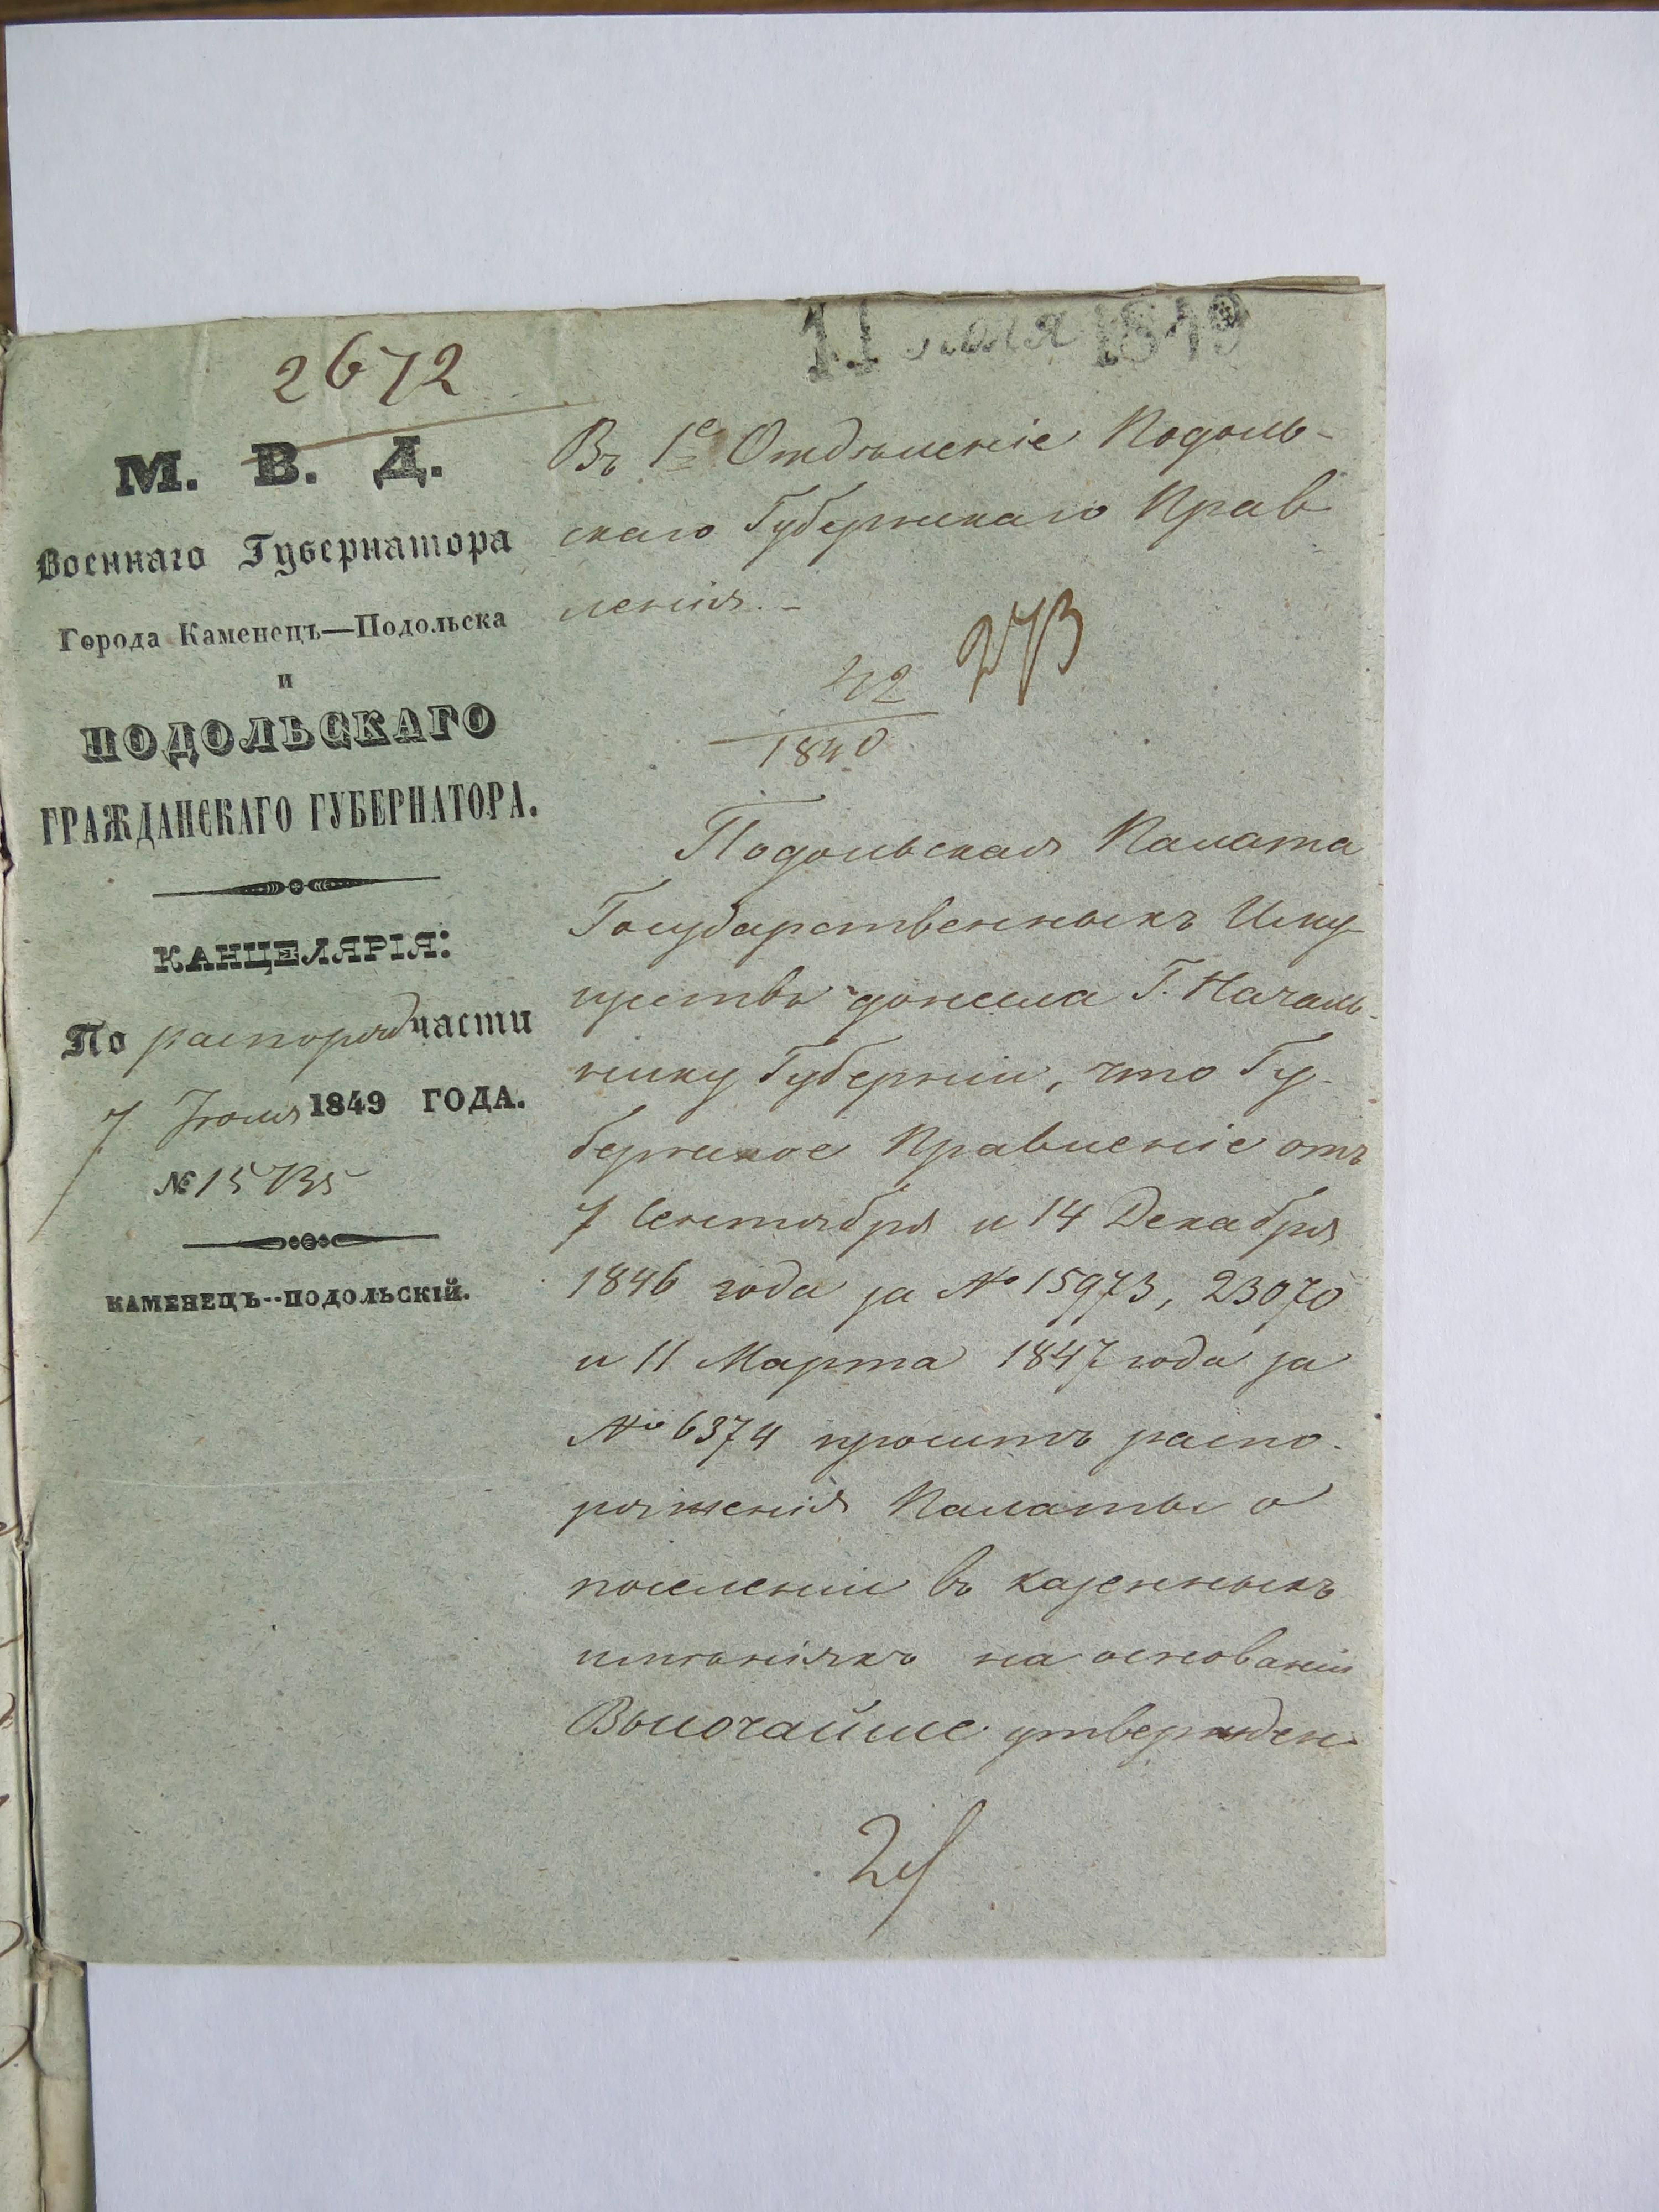 11 юля 1849
2672
М. В. Д.
Военнаго Губернатора
Города Каменецъ—Подольска
и
ПОДОЛЬСКАГО
ГРАЖДАНСКАГО ГУБЕРНАТОРА.
КАНЦЕЛЯРІЯ:
По распоряд части
7 Іюля 1849 ГОДА.
№
КАМЕНЕЦЪ--ПОДОЛЬСКІЙ.
Въ 1е Отдѣленіе Подоль-
скаго Губернскаго Прав
ленія. -
273
42
1840
Подольская Палата
Государственныхъ Иму-
ществъ донесла Г. Началь-
нику Губерніи, что Гу-
бернское Правленіе отъ
7 Сентября и 14 Декабря
1846 года за № 15973, 23070
и 11 Марта 1847 года за
№ 6374 проситъ распо-
ряженія Палаты о
поселеніи въ казенныхъ
имѣніяхъ на основаніи
Высочайше утвержден-